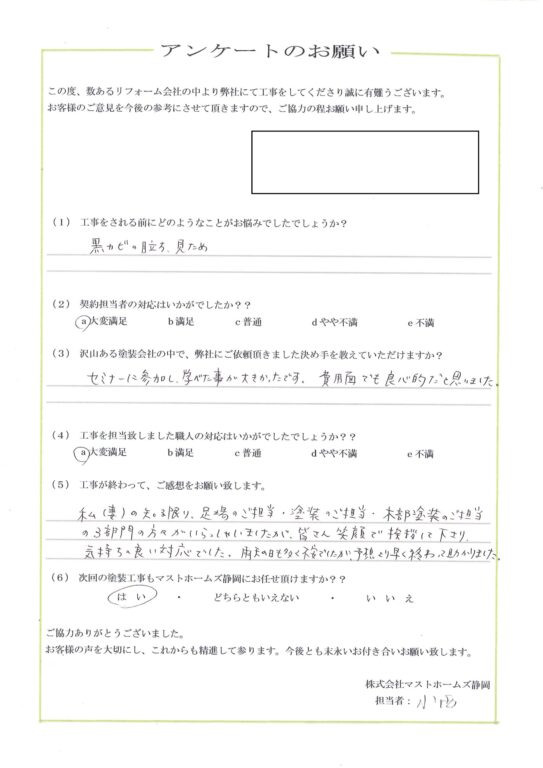 アンケートのお願い
この度、数あるリフォーム会社の中より弊社にて工事をしてくださり誠に有難うございます。
お客様のご意見を今後の参考にさせて頂きますので、ご協力の程お願い申し上げます。
（1） 工事をされる前にどのようなことがお悩みでしたでしょうか？
黒カビの目立ち、見ため
（2） 契約担当者の対応はいかがでしたか？？
a 大変満足 b 満足 c 普通 d やや不満 e 不満
（3） 沢山ある塗装会社の中で、弊社にご依頼頂きました決め手を教えていただけますか？
セミナーに参加し、学べた事が大きかったです。 費用面でも良心的だと思いました。
（4） 工事を担当致しました職人の対応はいかがでしたでしょうか？
a 大変満足 b 満足 c 普通 d やや不満 e 不満
（5） 工事が終わって、ご感想をお願い致します。
私（妻）の知る限り、足場のご担当・塗装のご担当・木部塗装のご担当
の3部門の方々がいらっしゃいましたが、皆さん笑顔で挨拶して下さり、
気持ちの良い対応でした。雨天の日も多く不安でしたが、予想より早く終わって助かりました。
（6） 次回の塗装工事もマストホームズ静岡にお任せ頂けますか？？
はい ・ どちらともいえない ・ いいえ
ご協力ありがとうございました。
お客様の声を大切にし、これからも精進して参ります。今後とも末永いお付き合いお願い致します。
株式会社マストホームズ静岡
担当者：